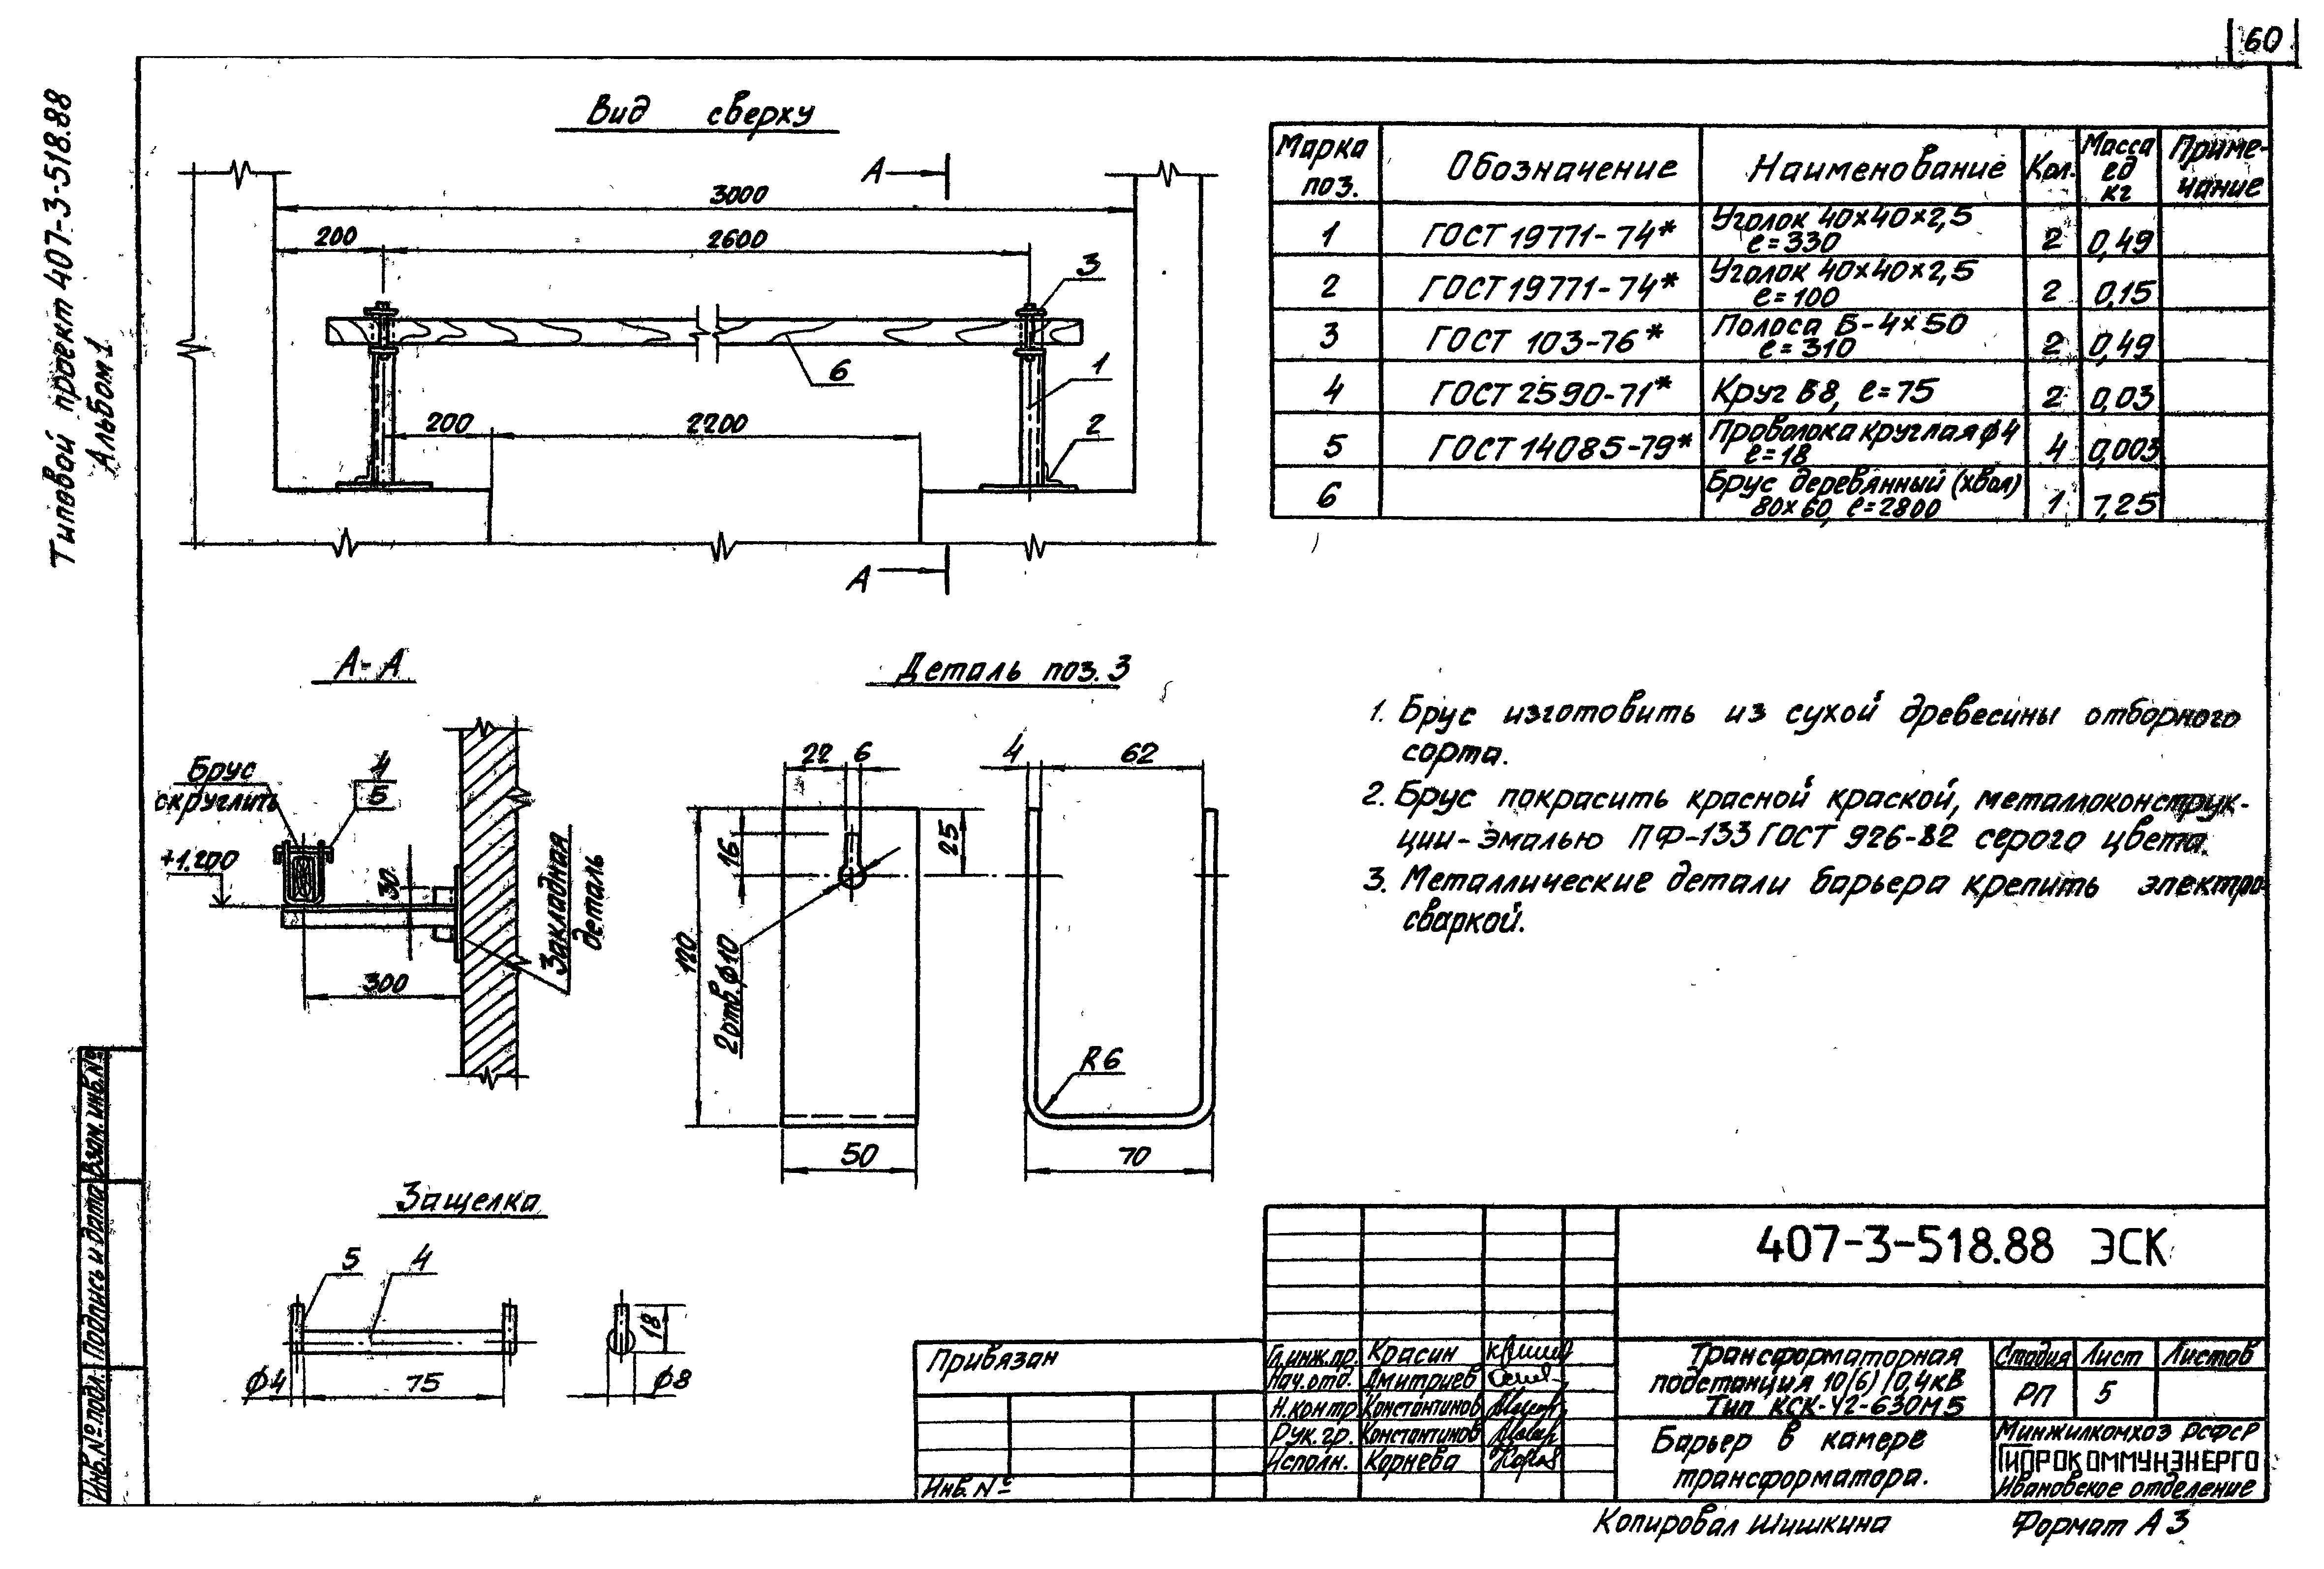 60
Типовой проект 407-3-518.88
Альбом 1
Вид сверху
А
3000
200
2600
3
6
1
200
2200
2
А
Марка поз.
Обозначение
Наименование
Кол.
Масса ед кг
Приме-чание
1 ГОСТ 19771-74* Уголок 40×40×2,5 ℓ=330 2 0,49
2 ГОСТ 19771-74* Уголок 40×40×2,5 ℓ=100 2 0,15
3 ГОСТ 103-76* Полоса Б-4×50 ℓ=310 2 0,49
4 ГОСТ 2590-71* Круг В8, ℓ=75 2 0,03
5 ГОСТ 14085-79* Проволока круглая ф4 ℓ=18 4 0,003
6 Брус деревянный (хвол) 80×60, ℓ=2800 1 7,25
А-А
Брус
скруглить
4
5
+1.200
30
300
Закладная
деталь
Деталь поз. 3
22
6
16
25
120
2отв.ф10
50
4
62
R6
70
1. Брус изготовить из сухой древесины отборного
сорта.
2. Брус покрасить красной краской, металлоконструк-
ции-эмалью ПФ-133 ГОСТ 926-82 серого цвета.
3. Металлические детали барьера крепить электро-
сваркой.
Защелка
5
4
ф4
75
18
ф8
Взам. инв.№
Подпись и дата
Инв.№подл.
Привязан
Инв.№
407-3-518.88 ЭСК
Гл.инж.пр. Красин
Нач.отд. Дмитриев
Н.контр Константинов
Рук.гр. Константинов
Исполн. Корнева
Трансформаторная
подстанция 10(6)/0,4кВ
Тип КСК-У2-630М5
Стадия Лист Листов
РП 5
Барьер в камере
трансформатора.
Минжилкомхоз РСФСР
ГИПРОКОММУНЭНЕРГО
Ивановское отделение
Копировал Шишкина
Формат А3